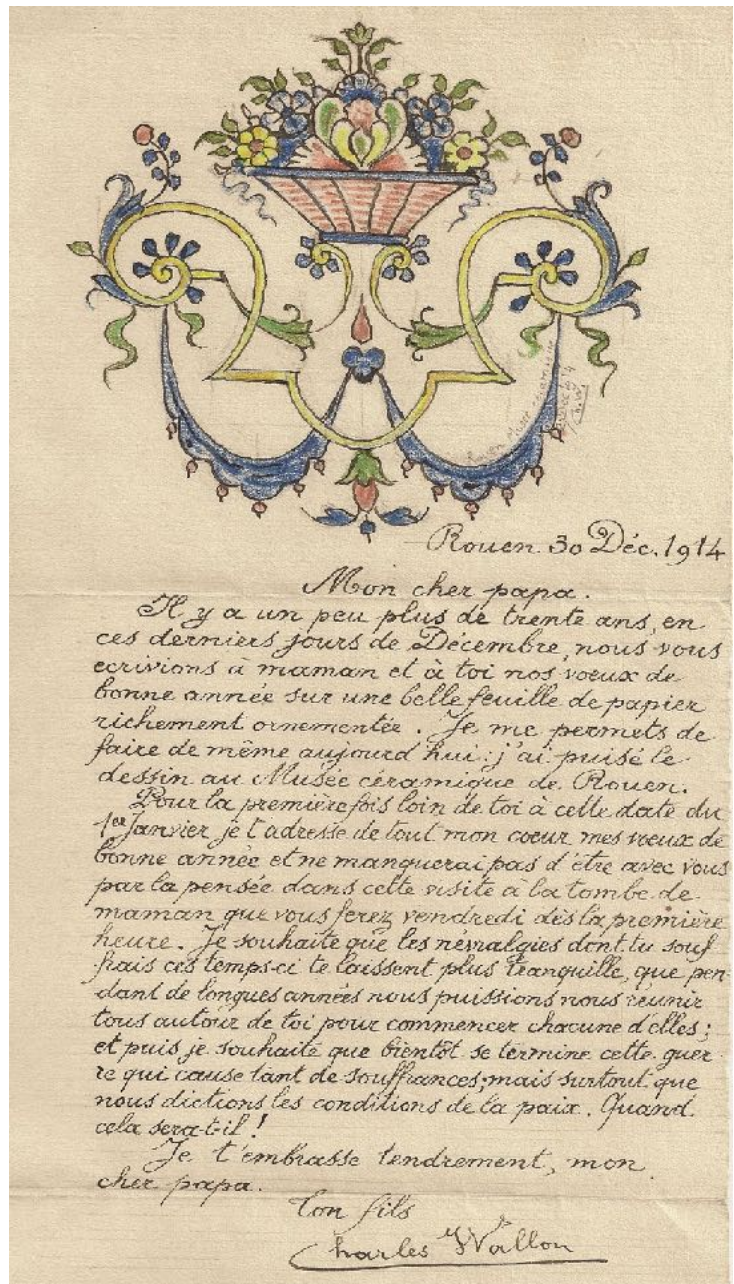 Rouen Musée céramique
Ch. W.
Rouen 30 Déc. 1914
Mon cher papa.
Il y a un peu plus de trente ans, en
ces derniers jours de Décembre, nous vous
ecrivions à maman et à toi nos voeux de
bonne année sur une belle feuille de papier
richement ornementée. Je me permets de
faire de même aujourd'hui: j'ai puisé le
dessin au Musée céramique de Rouen.
Pour la première fois loin de toi à cette date du
1er Janvier, je t'adresse de tout mon coeur mes voeux de
bonne année et ne manquerai pas d'être avec vous
par la pensée dans cette visite à la tombe de
maman que vous ferez vendredi dès la première
heure. Je souhaite que les névralgies dont tu souf
frais ces temps-ci te laissent plus tranquille, que pen
dant de longues années nous puissions nous réunir
tous autour de toi pour commencer chacune d'elles;
et puis je souhaite que bientôt se termine cette guer
re qui cause tant de souffrances; mais surtout que
nous dictions les conditions de la paix. Quand
cela sera-t-il!
Je t'embrasse tendrement, mon
cher papa.
Ton fils
Charles Wallon